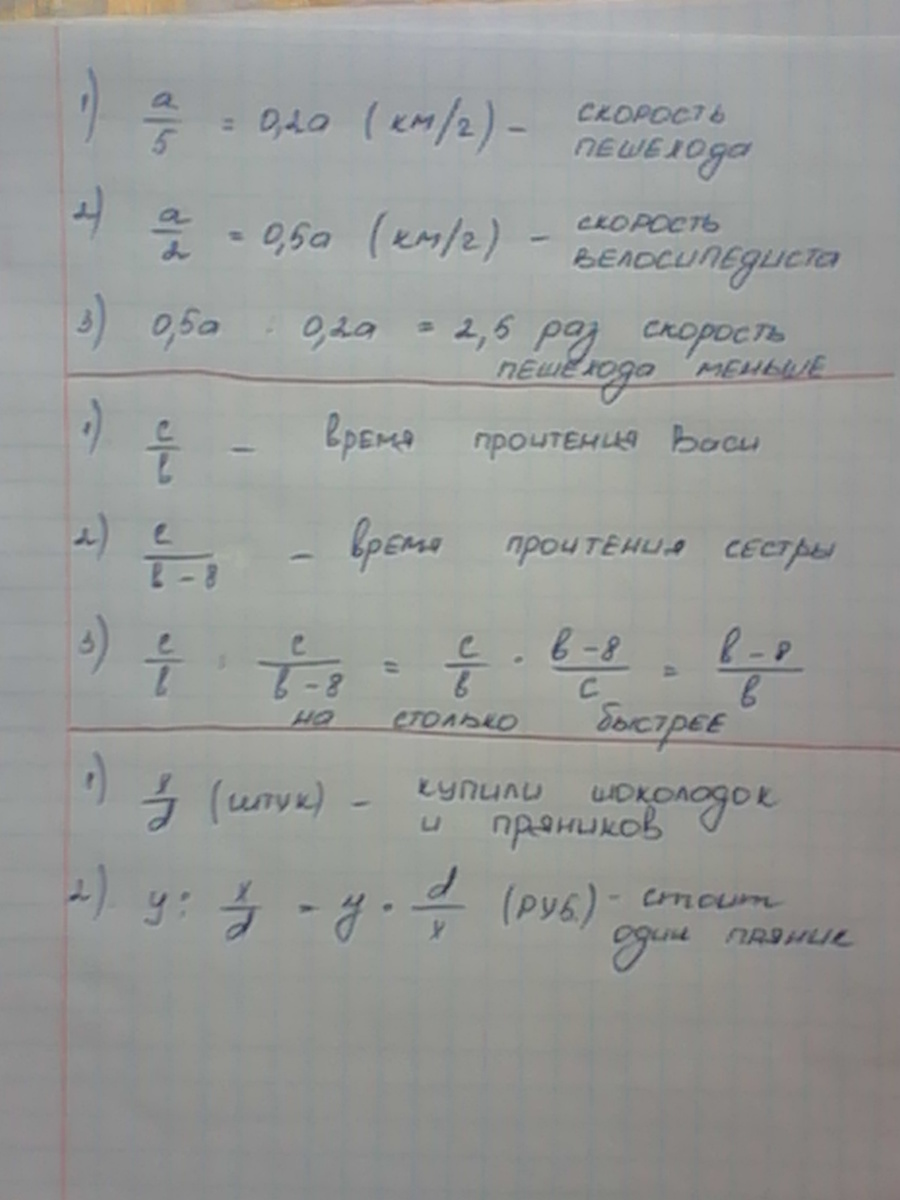 1) a/5 = 0,2a (км/г) - скорость
пешехода
2) a/2 = 0,5a (км/г) - скорость
велосипедиста
3) 0,5a : 0,2a = 2,5 раз скорость
пешехода меньше
1) c/в - время проитения Васи
2) c/(в-8) - время проитения сестры
3) c/в : c/(в-8) = c/в · (в-8)/c = (в-8)/в
на столько быстрее
1) x/d (штук) - купили шоколадок
и пряников
2) y : x/d = y · d/x (руб.) - стоит
один пряник